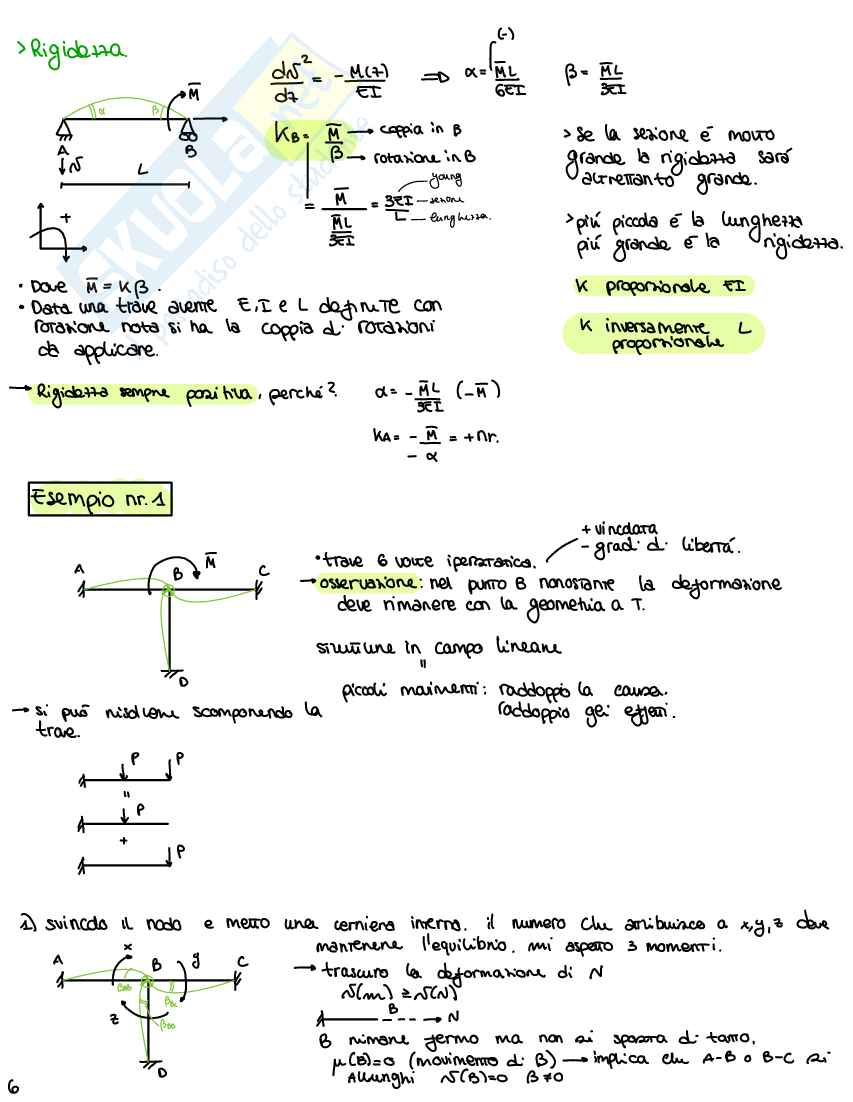 > Rigidezza
dv²/dz = - M(z)/EI ⟹ α = (-) M̅L/6EI β = M̅L/3EI
M̅
α β
A B
v L
+
K_B = M̅/β → coppia in B
→ rotazione in B
= M̅ / (M̅L/3EI) = 3EI/L
young
sezione
lunghezza.
> Se la sezione é molto
grande la rigidezza sará
altrettanto grande.
> piú piccola é la lunghezza
piú grande é la rigidezza.
K proporzionale EI
K inversamente L
proporzionale
• Dove M̅ = Kβ.
• Data una trave avente E, I e L definite con
rotazione nota si ha la coppia di rotazioni
da applicare.
→ Rigidezza sempre positiva, perché? α = - M̅L/3EI (-M̅)
K_A = - M̅/- α = + nr.
Esempio nr. 1
A B M̅ C
D
• trave 6 volte iperstatica.
+ vincolata
- gradi di libertá.
→ osservazione: nel punto B nonostante la deformazione
deve rimanere con la geometria a T.
simmune in campo lineare
"
piccoli movimenti: raddoppio la causa.
raddoppio gli effetti.
→ si puó risolvere scomponendo la
trave.
P P
"
P
+
P
1) svincolo il nodo e metto una cerniera interna. il numero che attribuisco a x, y, z deve
mantenere l'equilibrio. mi aspetto 3 momenti.
A x B y C
z
D
→ trascuro la deformazione di N
v(m) ≥ v(N)
B N
B rimane fermo ma non si sposta di tanto,
μ(B)=0 (movimento di B) → implica che A-B o B-C si
Allunghi v(B)=0 β≠0
6
SKUOLA.net
il paradiso dello studente